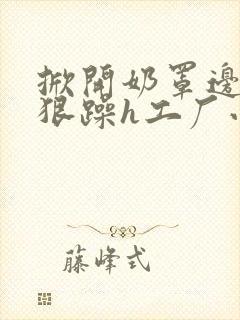 掀開奶罩邊
狠躁h工厂、
藤峰式